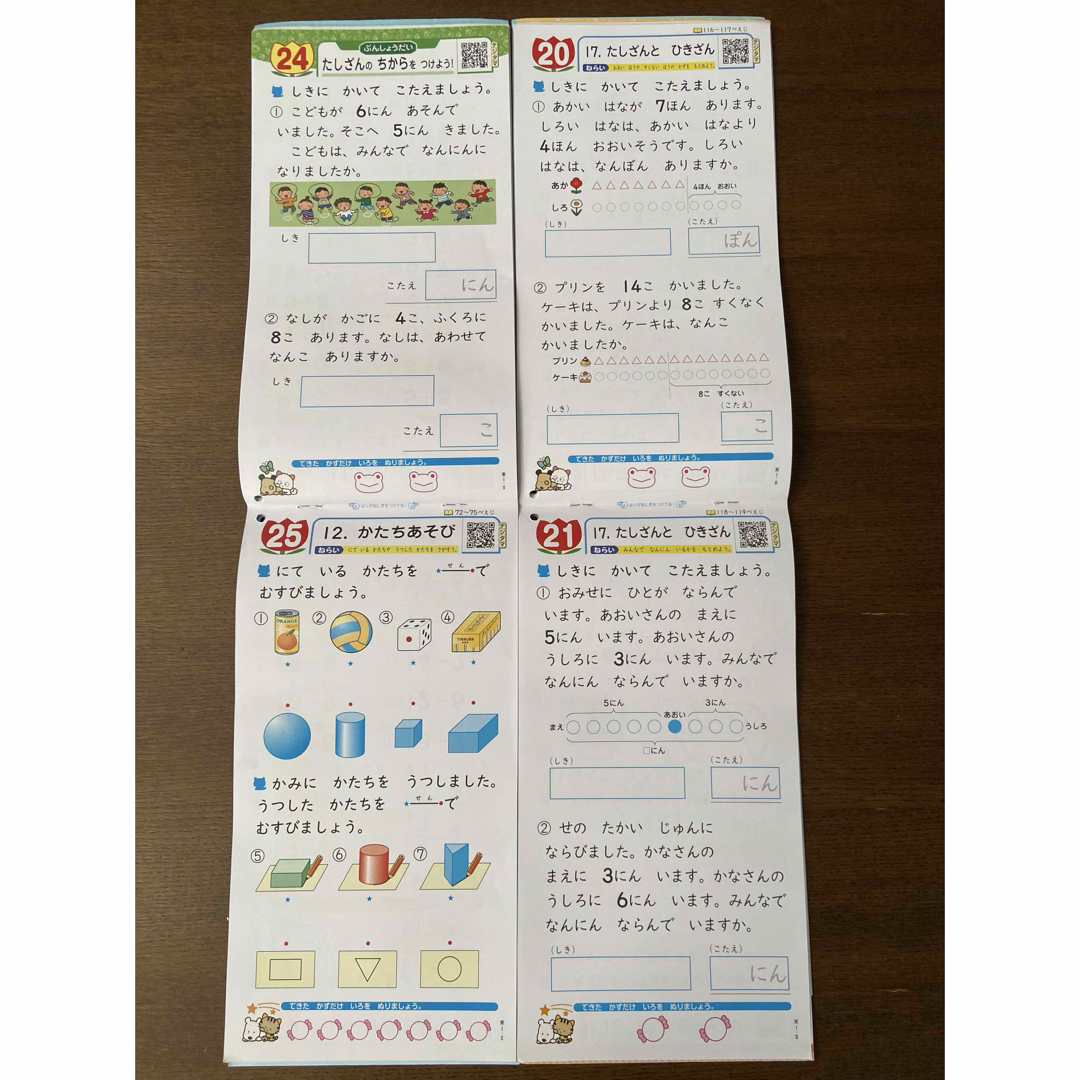 24
ぶんしょうだい
たしざんの ちからを つけよう!
しきに かいて こたえましょう。
① こどもが 6にん あそんで
いました。そこへ 5にん きました。
こどもは、みんなで なんにんに
なりましたか。
しき
こたえ にん
② なしが かごに 4こ、ふくろに
8こ あります。なしは、あわせて
なんこ ありますか。
しき
こたえ こ
できた かずだけ いろを ぬりましょう。
116〜117ぺえじ
20
17. たしざんと ひきざん
ねらい
しきに かいて こたえましょう。
① あかい はなが 7ほん あります。
しろい はなは、あかい はなより
4ほん おおいそうです。しろい
はなは、なんぼん ありますか。
あか 4ほん おおい
しろ
(しき) (こたえ)
ぽん
② プリンを 14こ かいました。
ケーキは、プリンより 8こ すくなく
かいました。ケーキは、なんこ
かいましたか。
プリン
ケーキ
8こ すくない
(しき) (こたえ)
こ
できた かずだけ いろを ぬりましょう。
72〜75ぺえじ
25
12. かたちあそび
ねらい にて いる かたちや うつした かたちを さがそう。
にて いる かたちを せんで
むすびましょう。
① ② ③ ④
ORANGE
かみに かたちを うつしました。
うつした かたちを せんで
むすびましょう。
⑤ ⑥ ⑦
できた かずだけ いろを ぬりましょう。
118〜119ぺえじ
21
17. たしざんと ひきざん
ねらい みんなで なんにん いるかを もとめよう。
しきに かいて こたえましょう。
① おみせに ひとが ならんで
います。あおいさんの まえに
5にん います。あおいさんの
うしろに 3にん います。みんなで
なんにん ならんで いますか。
5にん あおい 3にん
まえ うしろ
□にん
(しき) (こたえ)
にん
② せの たかい じゅんに
ならびました。かなさんの
まえに 3にん います。かなさんの
うしろに 6にん います。みんなで
なんにん ならんで いますか。
(しき) (こたえ)
にん
できた かずだけ いろを ぬりましょう。